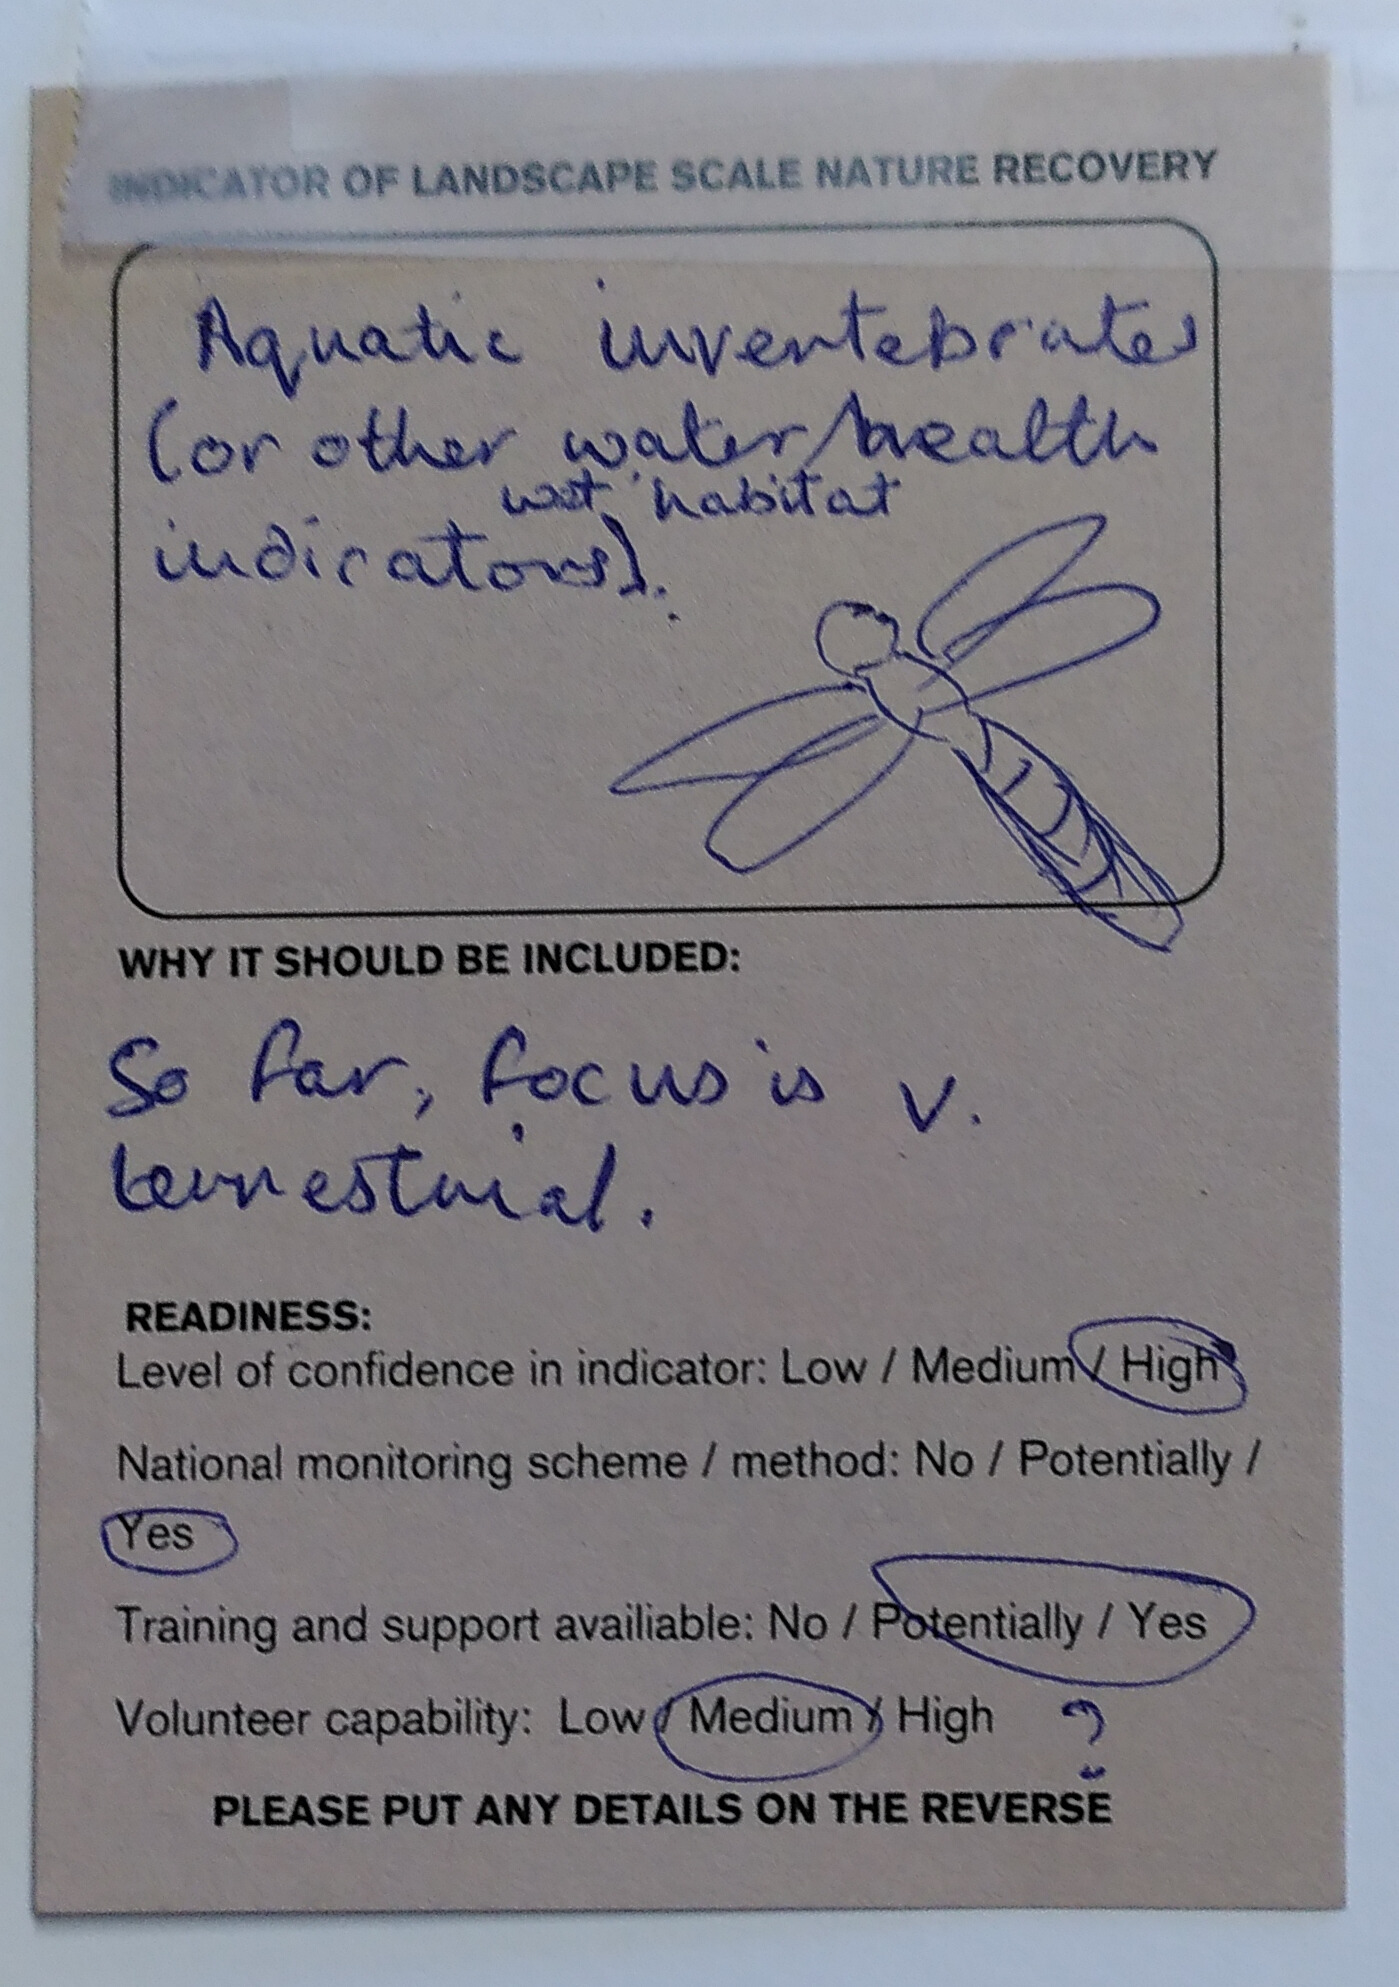 INDICATOR OF LANDSCAPE SCALE NATURE RECOVERY
Aquatic invertebrates
(or other water/health
wet habitat
indicators).
WHY IT SHOULD BE INCLUDED:
So far, focus is v.
terrestrial.
READINESS:
Level of confidence in indicator: Low / Medium / High
National monitoring scheme / method: No / Potentially /
Yes
Training and support availiable: No / Potentially / Yes
Volunteer capability: Low / Medium / High ?
PLEASE PUT ANY DETAILS ON THE REVERSE